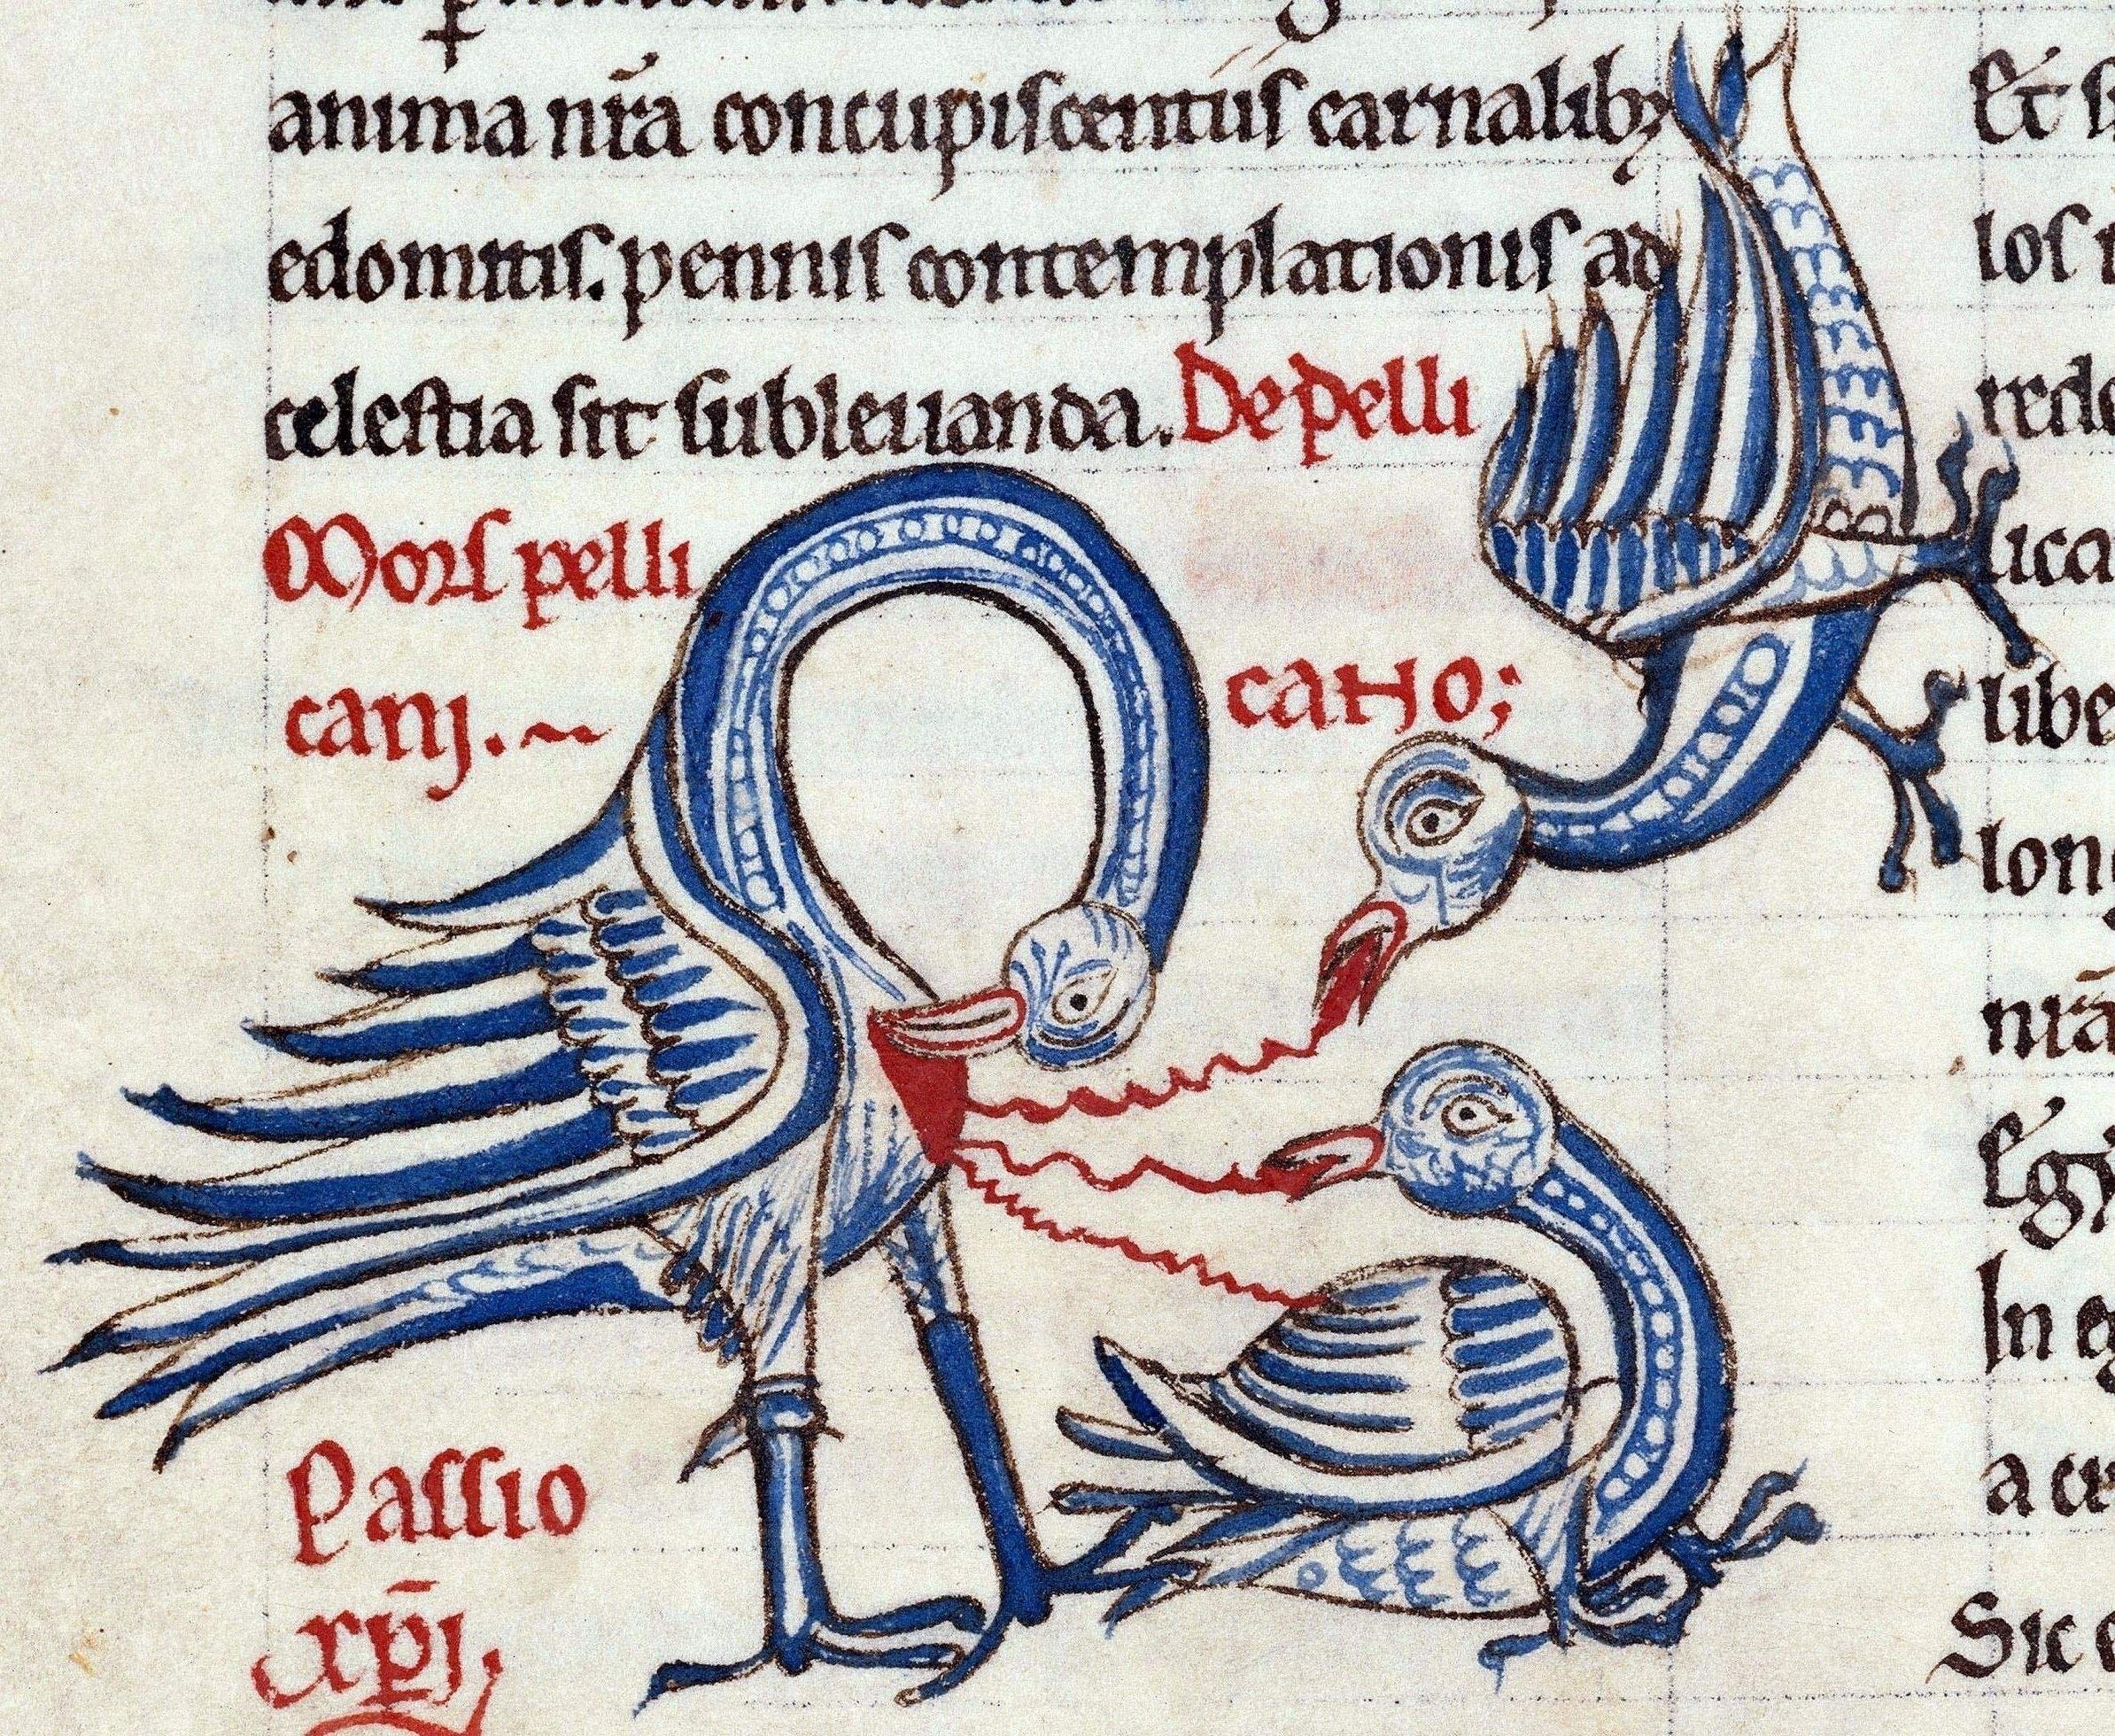 anima nr̄a concupiscentiis carnalibꝫ
edomitis. pennis contemplationis ad
celestia sit subleuanda. De pelli
cano;
Mors pelli
canj.~
Passio
xp̄i.
Et
los
rede
lica
libe
lon
nr̄a
Egy
In eg
a cr
Sic